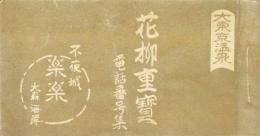 大東京温泉
花柳重寶
電話番号集
不夜城
楽楽
大森海岸